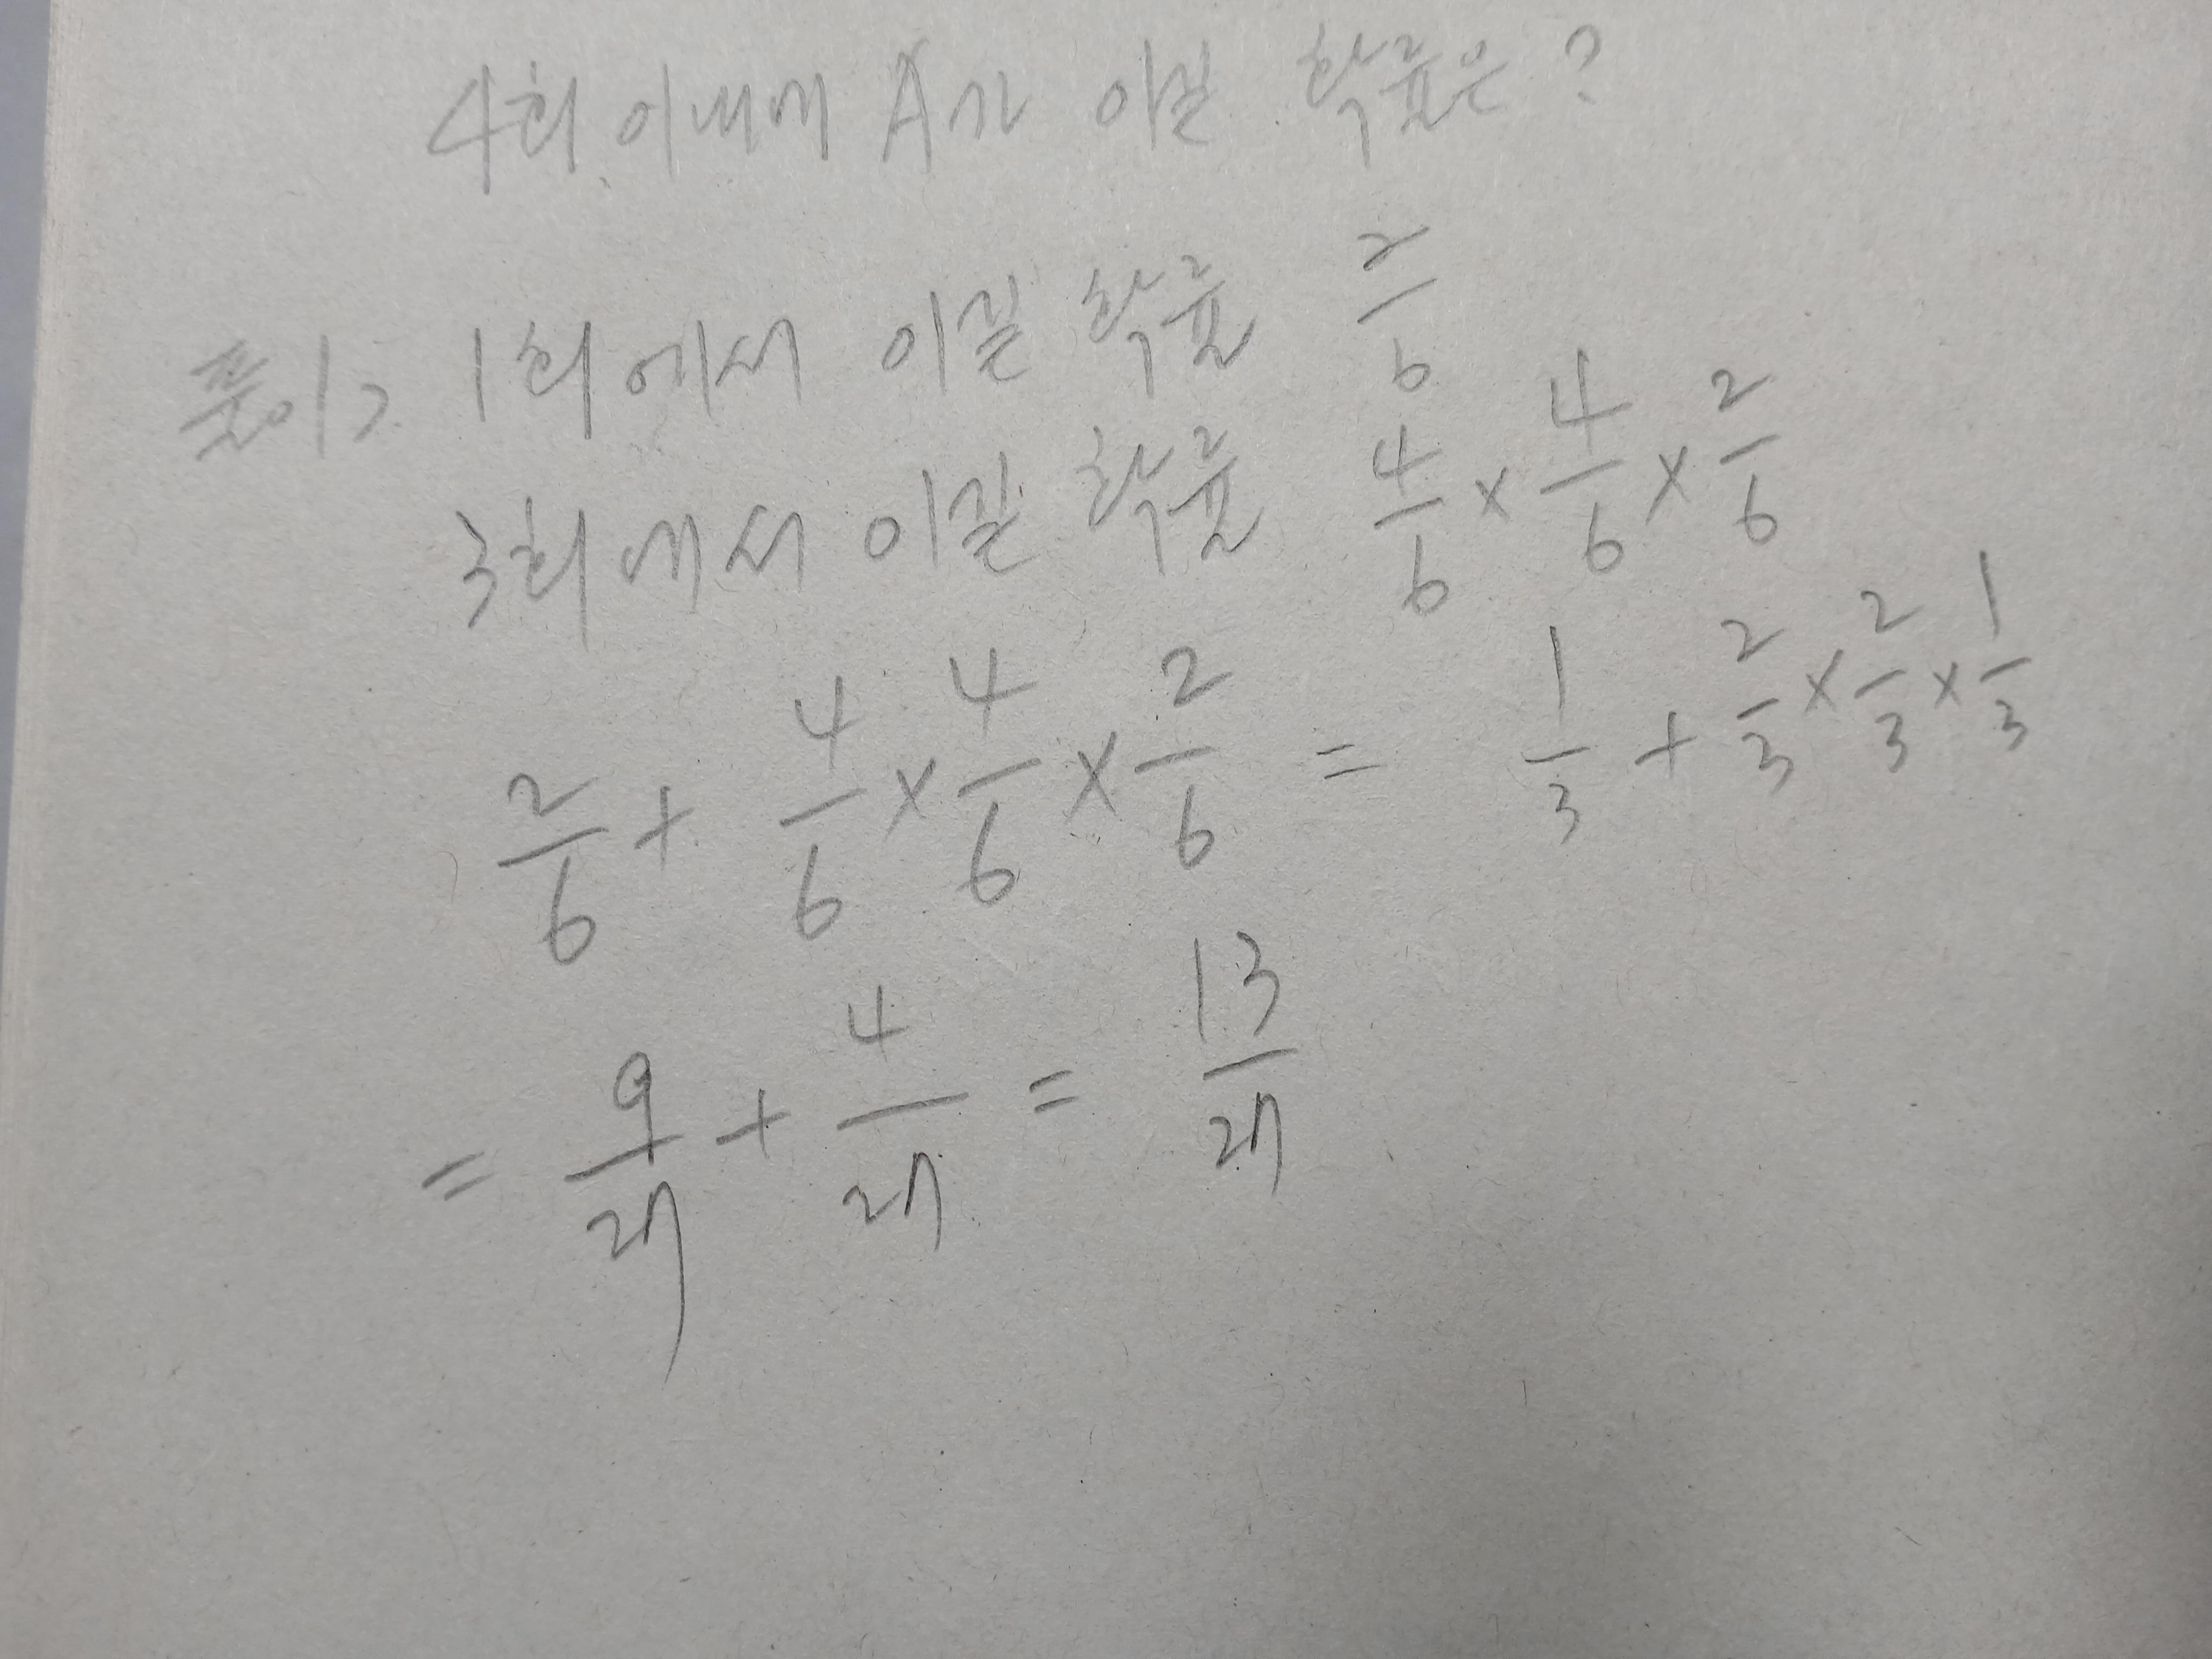 4회 이내에 A가 이길 확률은?
풀이> 1회에서 이길 확률 2/6
3회에서 이길 확률 4/6 × 4/6 × 2/6
2/6 + 4/6 × 4/6 × 2/6 = 1/3 + 2/3 × 2/3 × 1/3
= 9/27 + 4/27 = 13/27